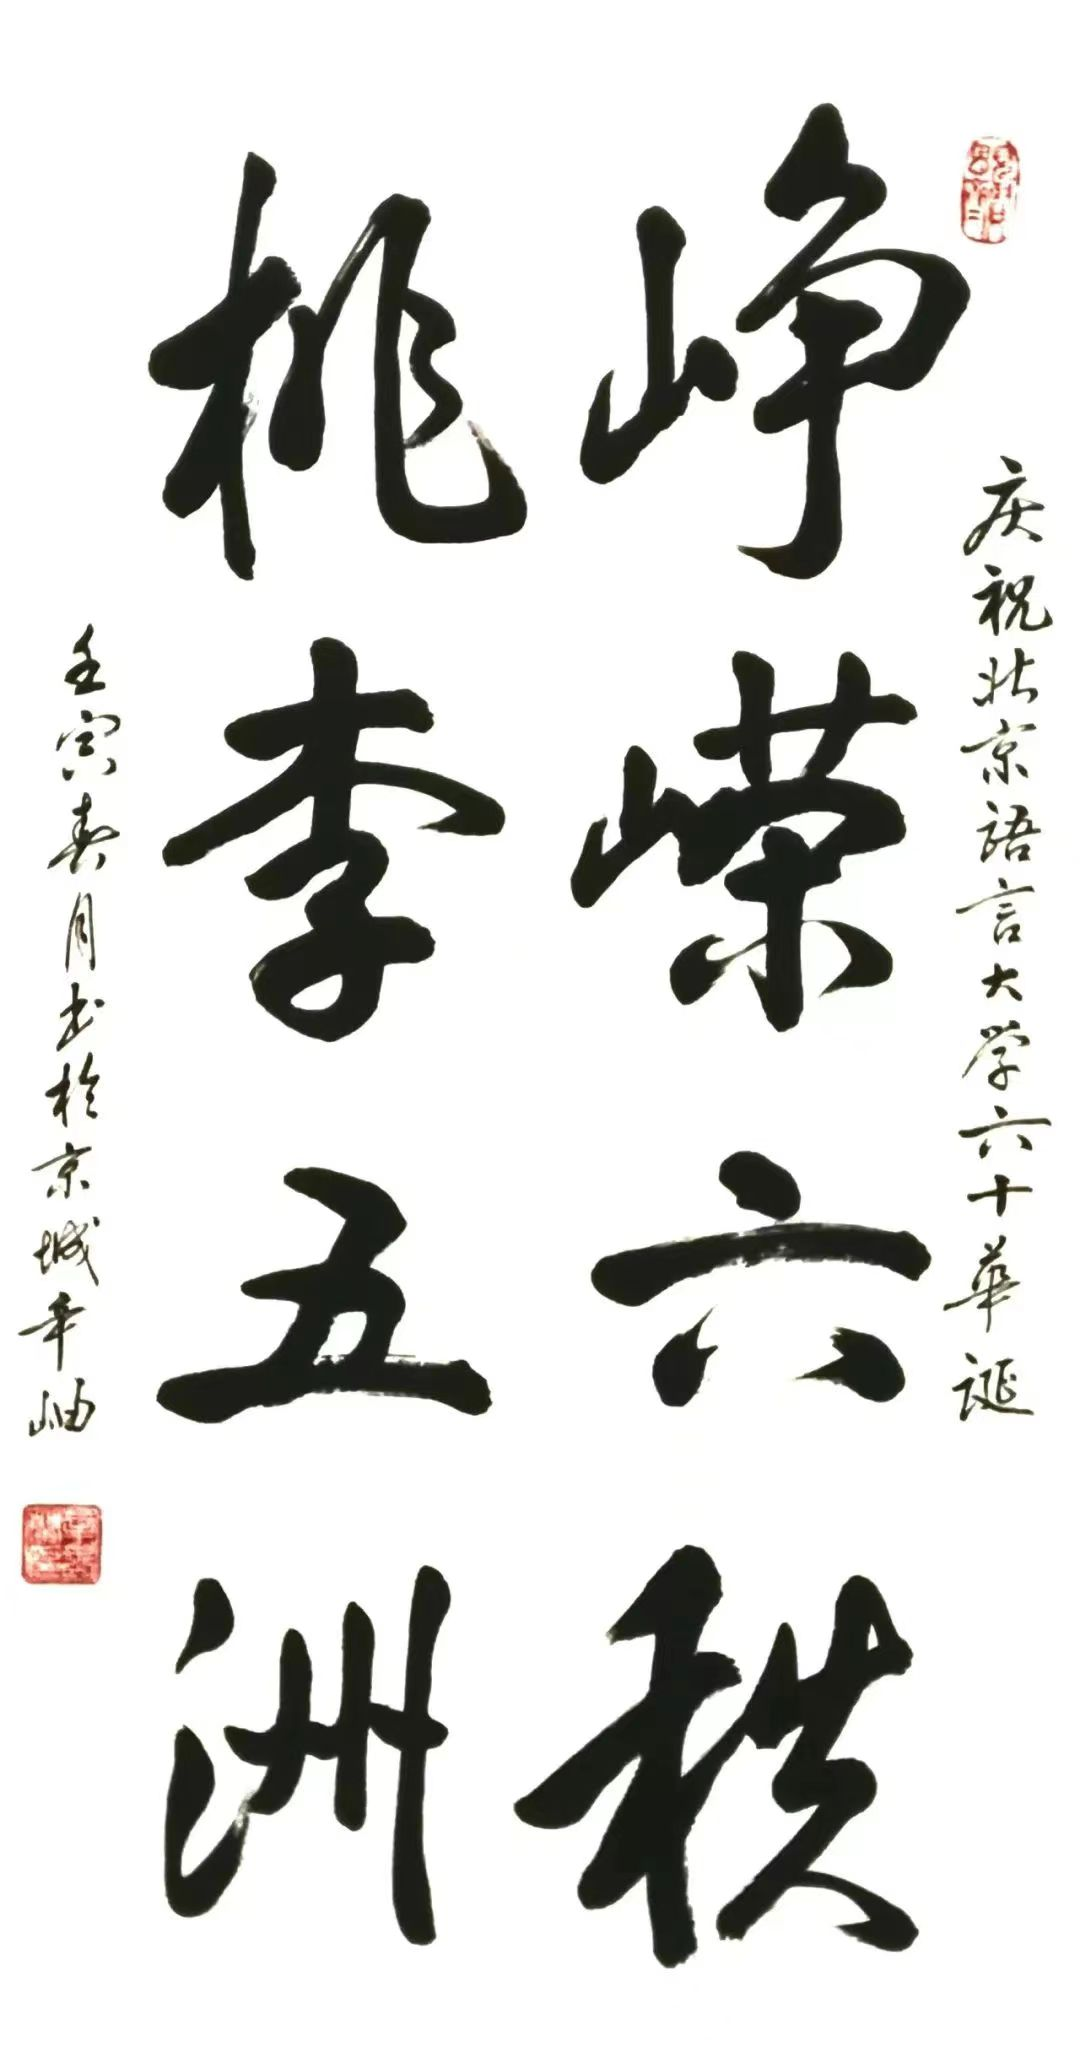 庆祝北京語言大学六十華誕
峥嵘六秩
桃李五洲
壬寅春月书於京城辛岫